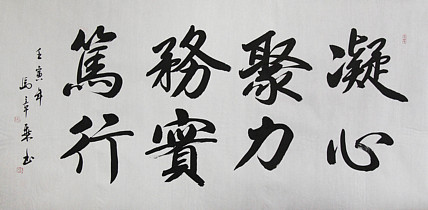 凝心
聚力
務實
篤行
壬寅年
馬章乘書